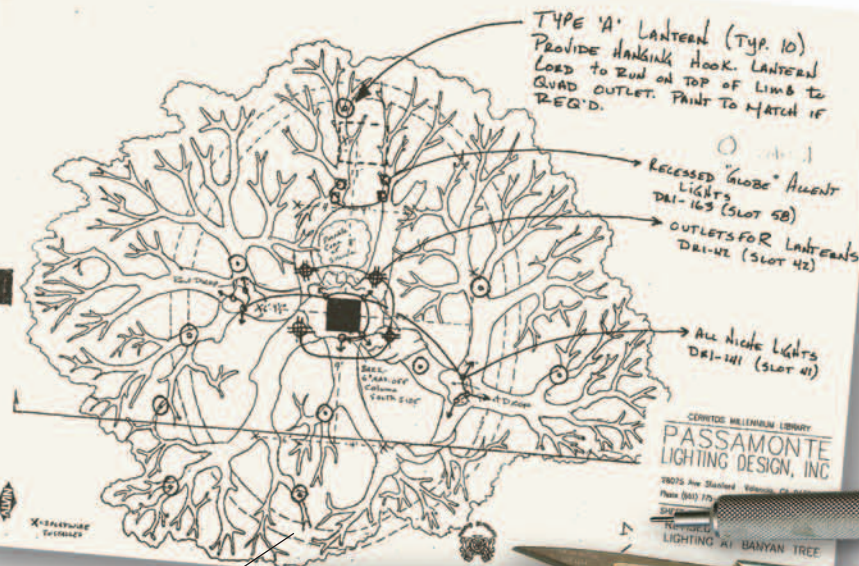 TYPE 'A' LANTERN (TYP. 10)
PROVIDE HANGING HOOK. LANTERN
CORD TO RUN ON TOP OF LIMB TO
QUAD OUTLET. PAINT TO MATCH IF
REQ'D.
RECESSED "GLOBE" ACCENT
LIGHTS
DR1-163 (SLOT 58)
OUTLETS FOR LANTERNS
DR1-42 (SLOT 42)
ALL NICHE LIGHTS
DR1-241 (SLOT 41)
COLUMN
SOUTH SIDE
CERRITOS MILLENNIUM LIBRARY
PASSAMONTE
LIGHTING DESIGN, INC
Ave Stanford
Phone (661)
LIGHTING AT BANYAN TREE
ALVIN